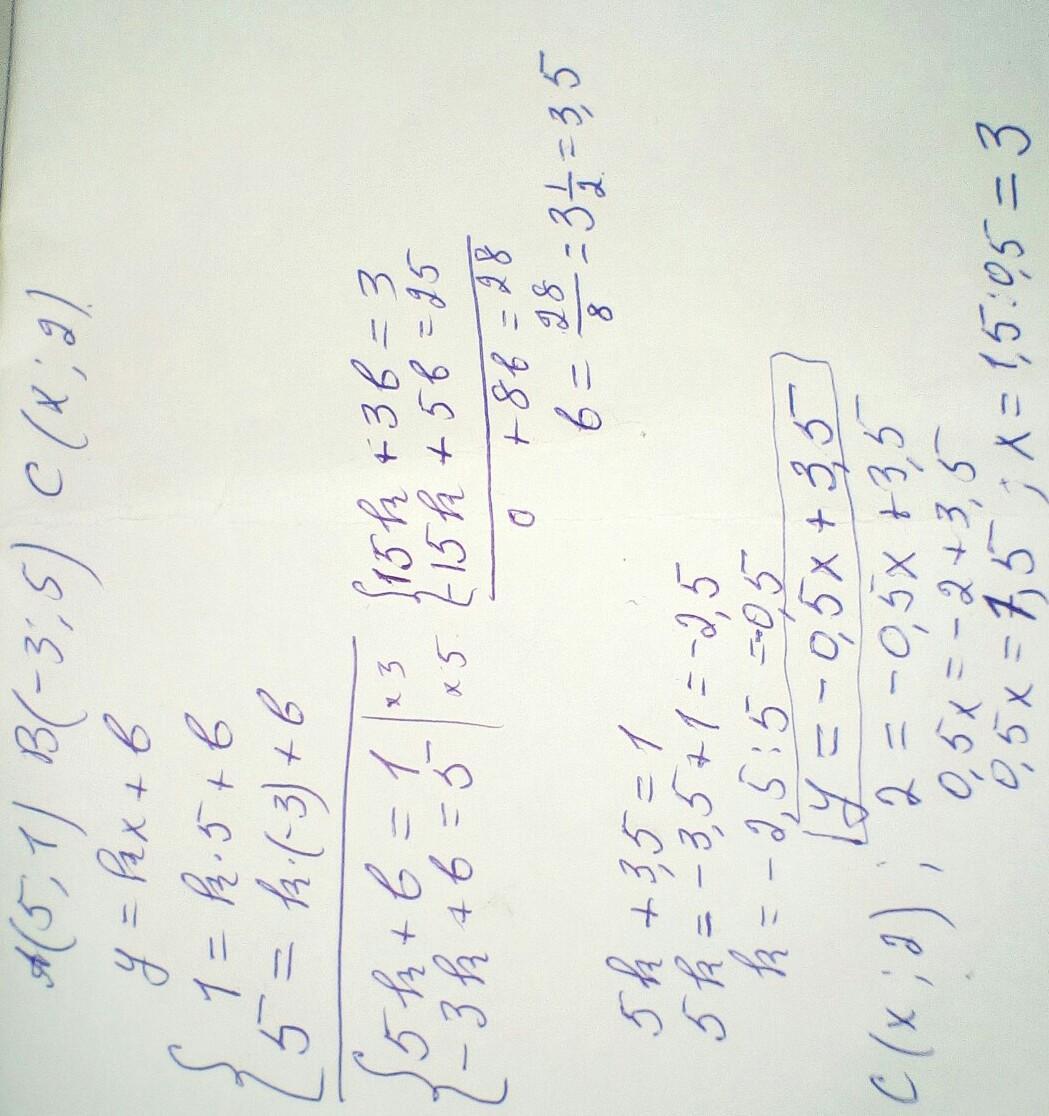 A(5; 1) B(-3; 5) C(x; 2)
y = kx + b
{ 1 = k·5 + b
5 = k·(-3) + b
{ 5k + b = 1 | x 3
-3k + b = 5 | x 5
{ 15k + 3b = 3
-15k + 5b = 25
0 + 8b = 28
b = 28/8 = 3 1/2 = 3,5
5k + 3,5 = 1
5k = -3,5 + 1 = -2,5
k = -2,5 : 5 = -0,5
y = -0,5x + 3,5
C(x; 2); 2 = -0,5x + 3,5
0,5x = -2 + 3,5
0,5x = 1,5; x = 1,5 : 0,5 = 3